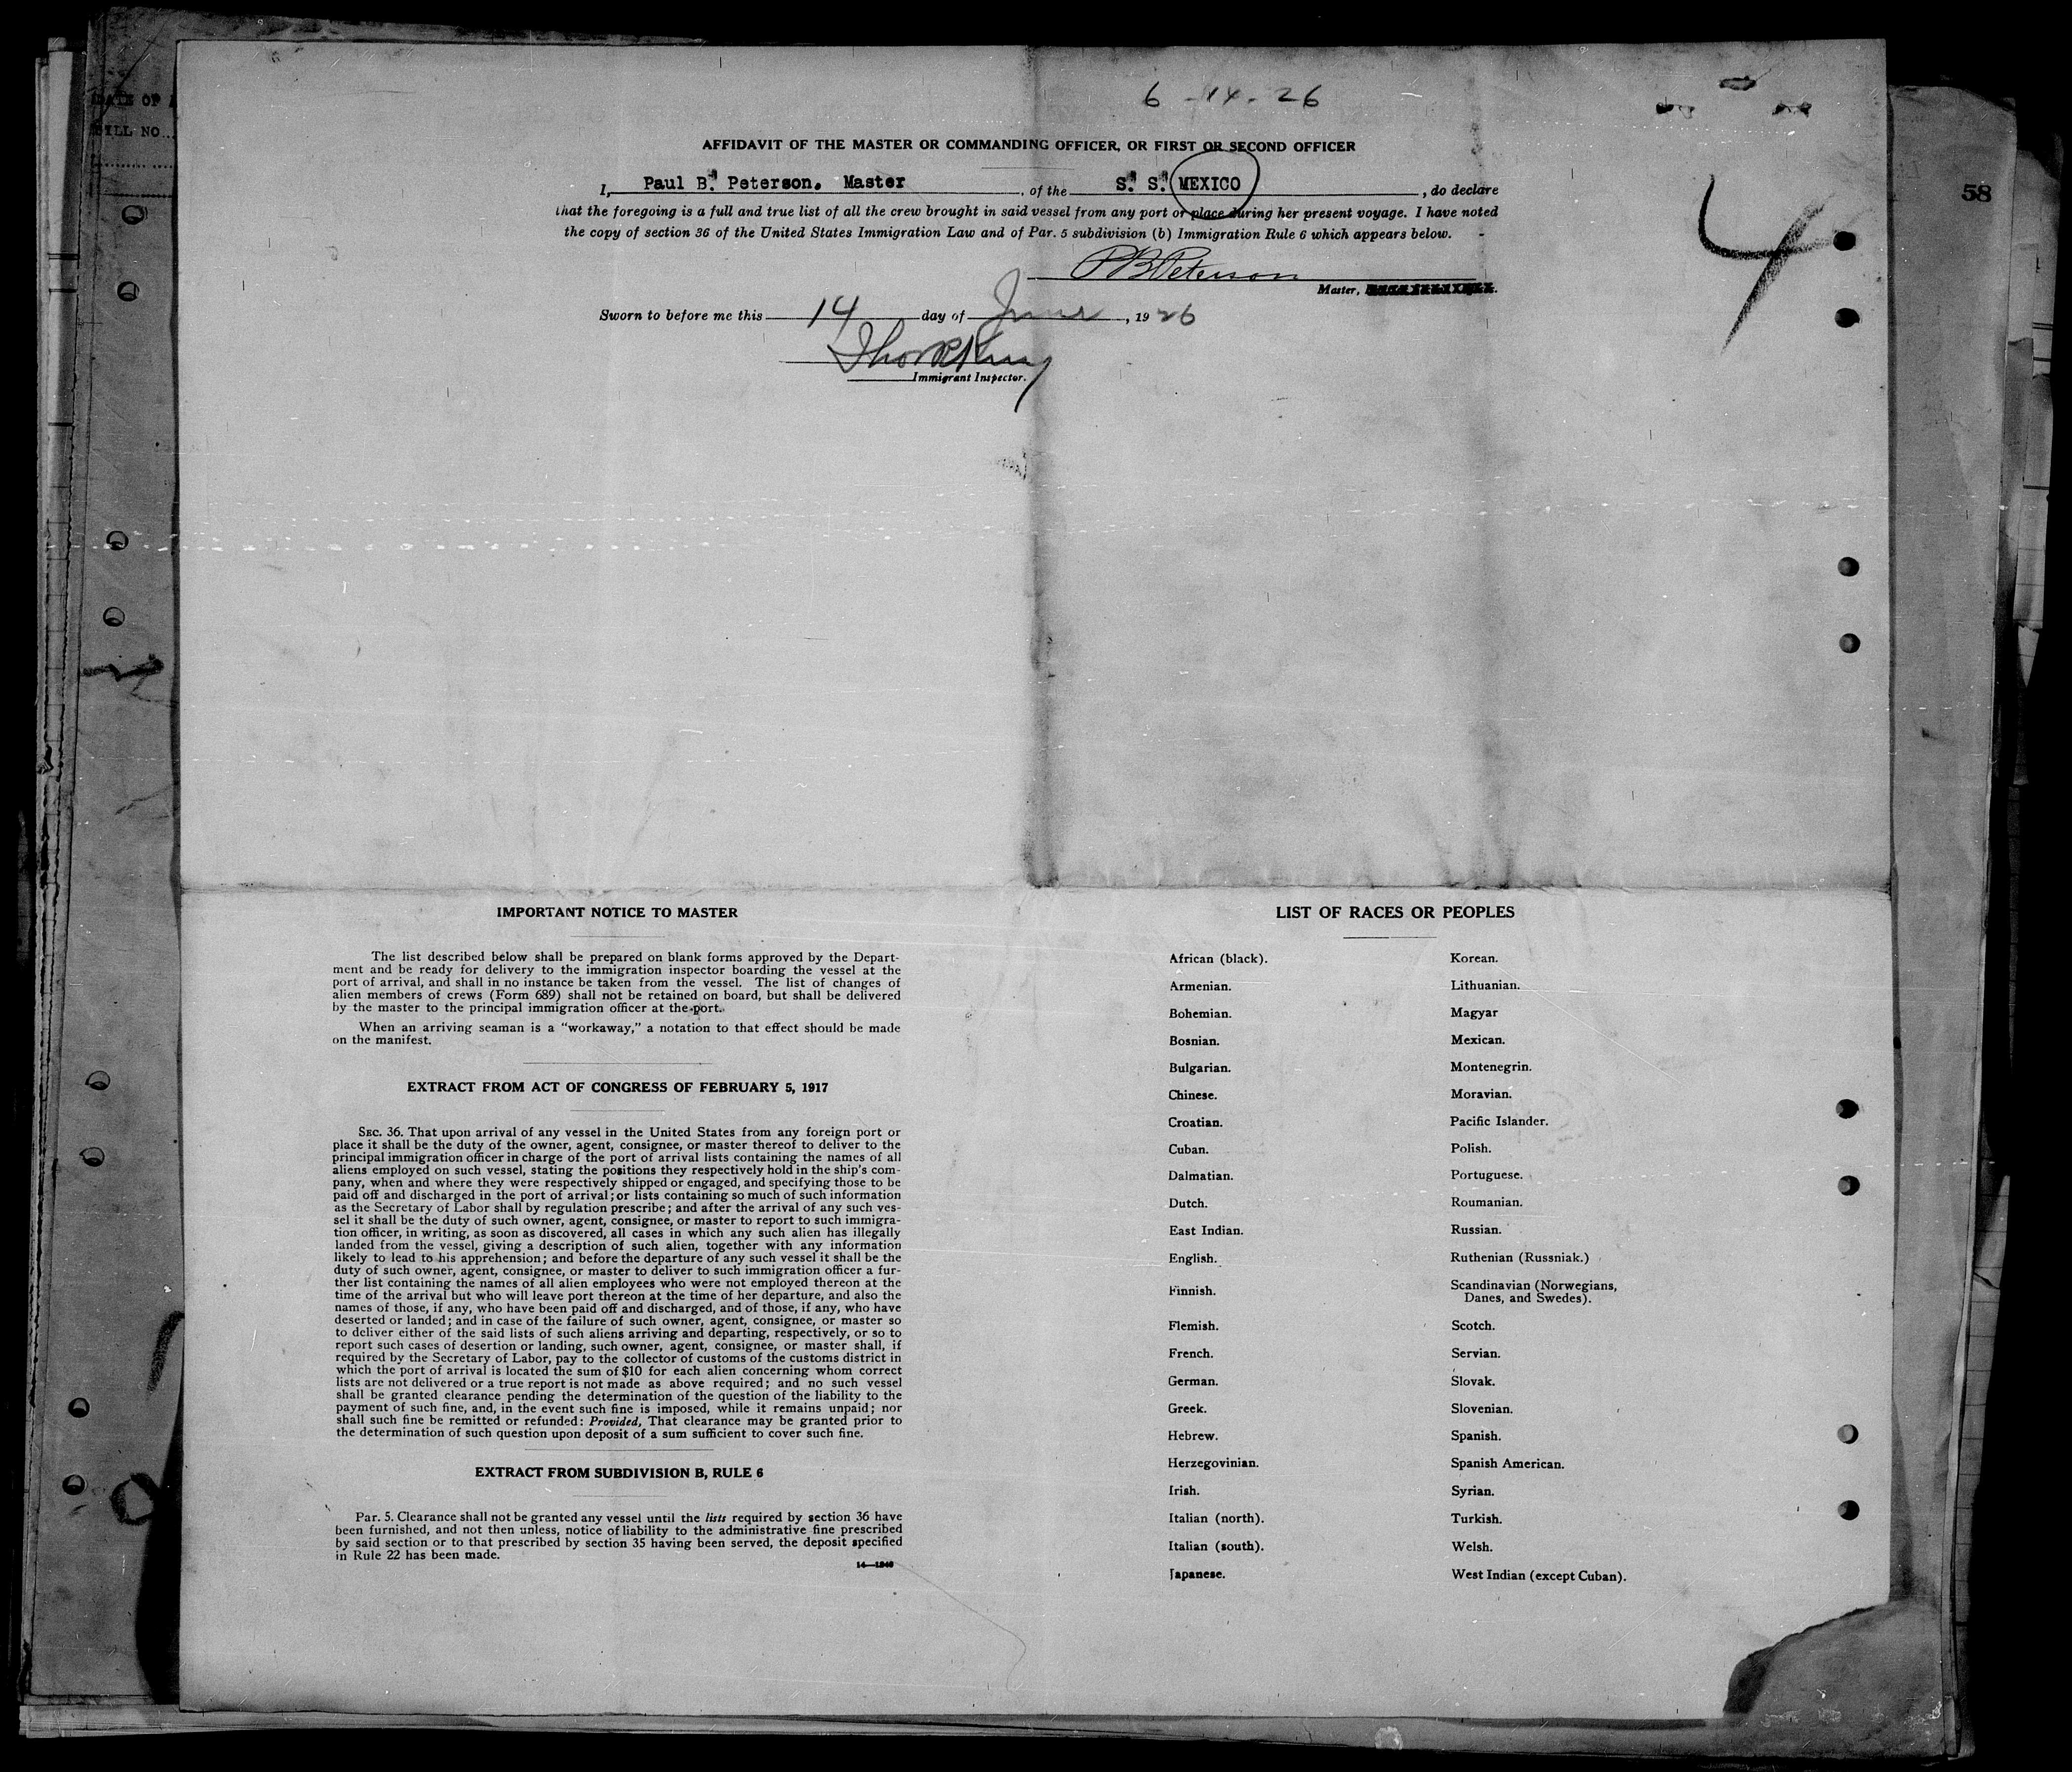 6-14-26
AFFIDAVIT OF THE MASTER OR COMMANDING OFFICER, OR FIRST OR SECOND OFFICER
I, Paul B. Peterson, Master, of the S. S. MEXICO, do declare
that the foregoing is a full and true list of all the crew brought in said vessel from any port or place during her present voyage. I have noted
the copy of section 36 of the United States Immigration Law and of Par. 5 subdivision (b) Immigration Rule 6 which appears below.
PB Peterson
Master,
Sworn to before me this 14 day of June, 1926
Immigrant Inspector.
4
58
DATE OF
BILL NO...
IMPORTANT NOTICE TO MASTER
The list described below shall be prepared on blank forms approved by the Depart-
ment and be ready for delivery to the immigration inspector boarding the vessel at the
port of arrival, and shall in no instance be taken from the vessel. The list of changes of
alien members of crews (Form 689) shall not be retained on board, but shall be delivered
by the master to the principal immigration officer at the port.
When an arriving seaman is a "workaway," a notation to that effect should be made
on the manifest.
EXTRACT FROM ACT OF CONGRESS OF FEBRUARY 5, 1917
SEC. 36. That upon arrival of any vessel in the United States from any foreign port or
place it shall be the duty of the owner, agent, consignee, or master thereof to deliver to the
principal immigration officer in charge of the port of arrival lists containing the names of all
aliens employed on such vessel, stating the positions they respectively hold in the ship's com-
pany, when and where they were respectively shipped or engaged, and specifying those to be
paid off and discharged in the port of arrival; or lists containing so much of such information
as the Secretary of Labor shall by regulation prescribe; and after the arrival of any such ves-
sel it shall be the duty of such owner, agent, consignee, or master to report to such immigra-
tion officer, in writing, as soon as discovered, all cases in which any such alien has illegally
landed from the vessel, giving a description of such alien, together with any information
likely to lead to his apprehension; and before the departure of any such vessel it shall be the
duty of such owner, agent, consignee, or master to deliver to such immigration officer a fur-
ther list containing the names of all alien employees who were not employed thereon at the
time of the arrival but who will leave port thereon at the time of her departure, and also the
names of those, if any, who have been paid off and discharged, and of those, if any, who have
deserted or landed; and in case of the failure of such owner, agent, consignee, or master so
to deliver either of the said lists of such aliens arriving and departing, respectively, or so to
report such cases of desertion or landing, such owner, agent, consignee, or master shall, if
required by the Secretary of Labor, pay to the collector of customs of the customs district in
which the port of arrival is located the sum of $10 for each alien concerning whom correct
lists are not delivered or a true report is not made as above required; and no such vessel
shall be granted clearance pending the determination of the question of the liability to the
payment of such fine, and, in the event such fine is imposed, while it remains unpaid; nor
shall such fine be remitted or refunded: Provided, That clearance may be granted prior to
the determination of such question upon deposit of a sum sufficient to cover such fine.
EXTRACT FROM SUBDIVISION B, RULE 6
Par. 5. Clearance shall not be granted any vessel until the lists required by section 36 have
been furnished, and not then unless, notice of liability to the administrative fine prescribed
by said section or to that prescribed by section 35 having been served, the deposit specified
in Rule 22 has been made.
LIST OF RACES OR PEOPLES
African (black).
Armenian.
Bohemian.
Bosnian.
Bulgarian.
Chinese.
Croatian.
Cuban.
Dalmatian.
Dutch.
East Indian.
English.
Finnish.
Flemish.
French.
German.
Greek.
Hebrew.
Herzegovinian.
Irish.
Italian (north).
Italian (south).
Japanese.
Korean.
Lithuanian.
Magyar
Mexican.
Montenegrin.
Moravian.
Pacific Islander.
Polish.
Portuguese.
Roumanian.
Russian.
Ruthenian (Russniak.)
Scandinavian (Norwegians,
Danes, and Swedes).
Scotch.
Servian.
Slovak.
Slovenian.
Spanish.
Spanish American.
Syrian.
Turkish.
Welsh.
West Indian (except Cuban).